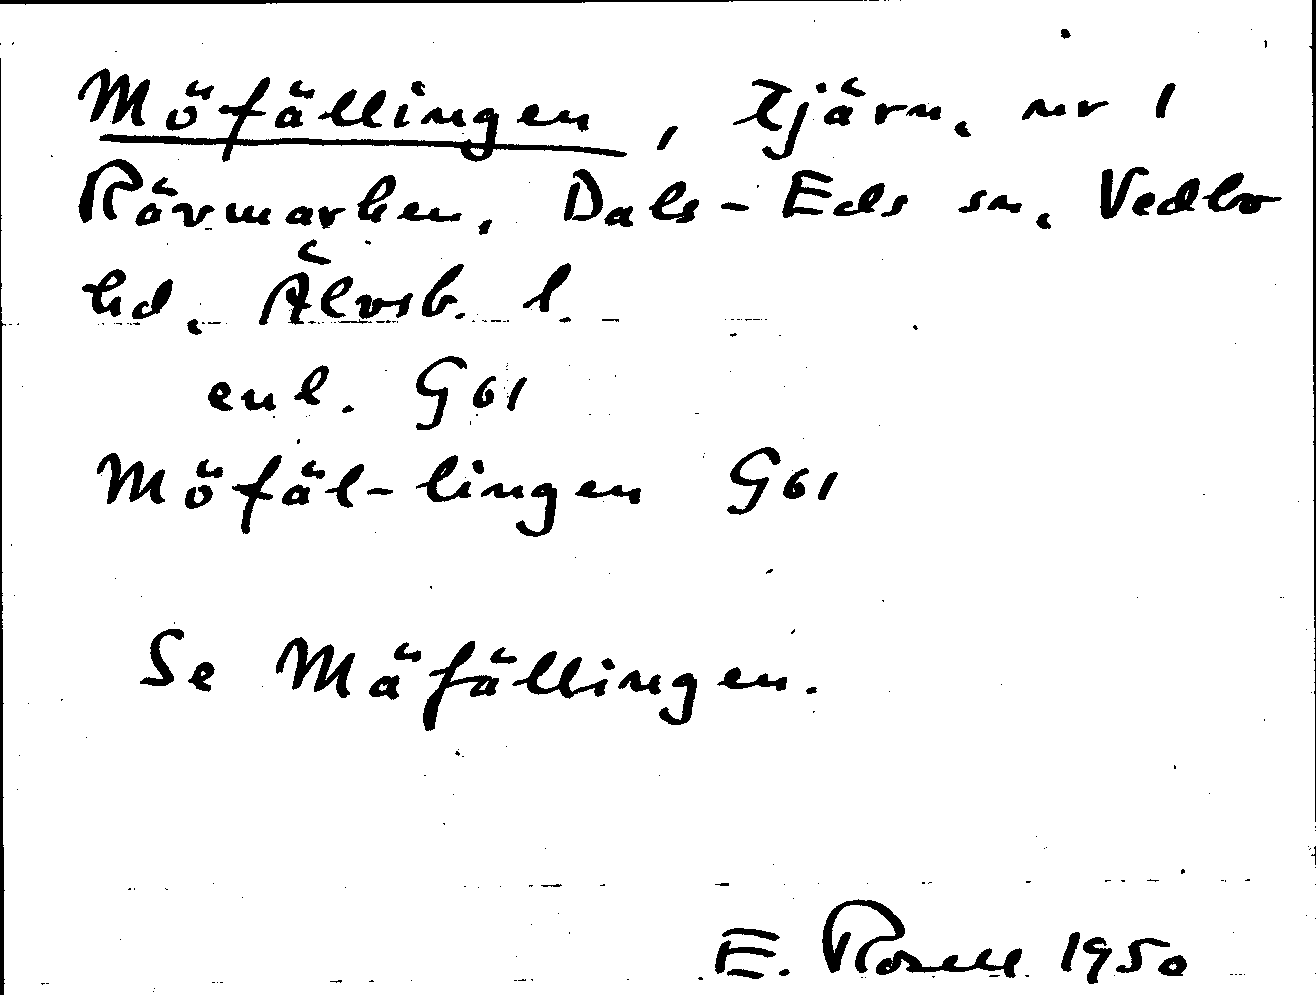 Möfällingen, tjärn, nr 1
Rävmarken, Dals-Eds sn, Vedbo
hd, Älvsb. l.
enl. G61
Möfäl-lingen G61
Se Mäfällingen.
E. Rosell 1950